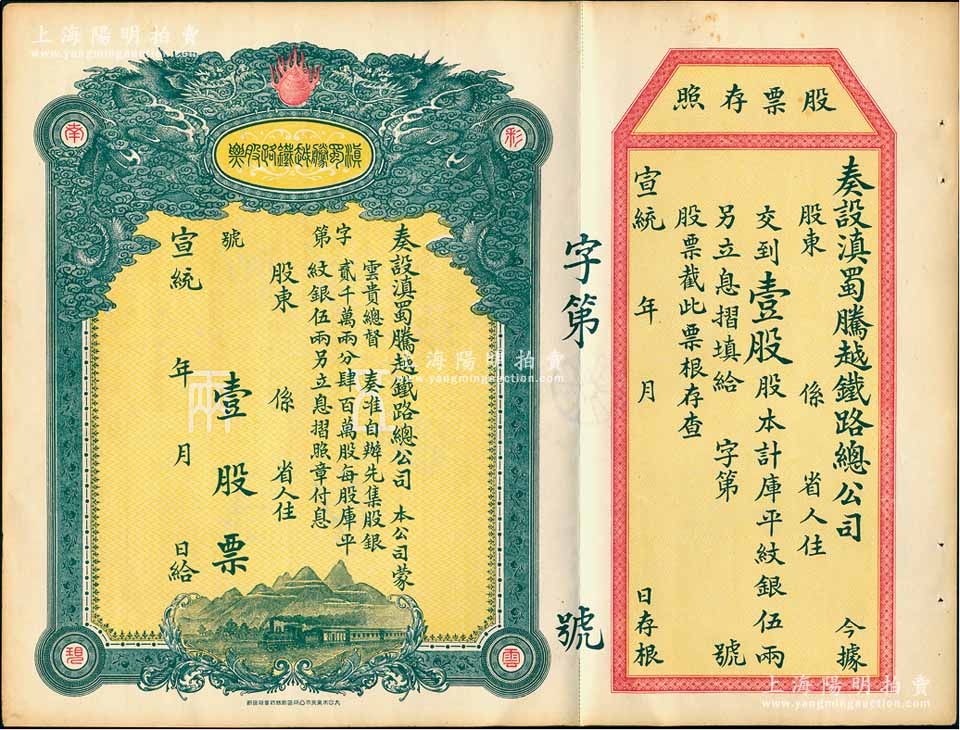 上海陽明拍賣
www.yangmingauction.com
股票存照
奏設滇蜀騰越鐵路總公司 今據
股東 係 省人住
交到壹股股本計庫平紋銀伍兩
另立息摺填給 字第 號
股票截此票根存查
宣統 年 月 日存根
字第 號
滇蜀騰越鐵路股票
彩
雲
南
現
奏設滇蜀騰越鐵路總公司 本公司蒙
雲貴總督 奏准自辦先集股銀
貳千萬兩分肆百萬股每股庫平
紋銀伍兩另立息摺照章付息
字第 號
股東 係 省人住
壹股票
宣統 年 月 日給
伍
兩
上海陽明拍賣
www.yangmingauction.com
上海陽明拍賣
www.yangmingauction.com